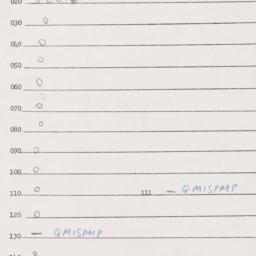 020
030 0
040 0
050 0
060 0
070 0
080 0
090 0
100 0
110 0 111 — QMISPMP
120 0
130 — QMISPMP